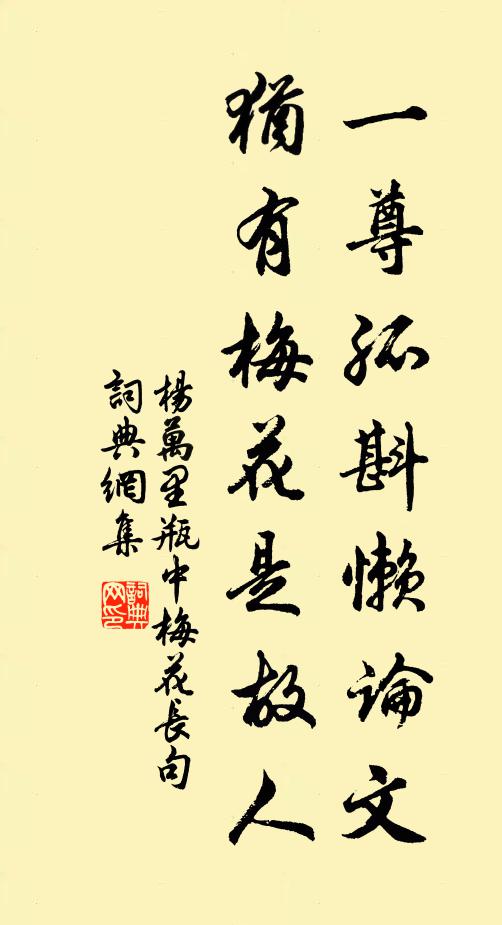 一尊孤斟懒論文
猶有梅花是故人
楊萬里瓶中梅花長句
詞典網集
詞典
网印